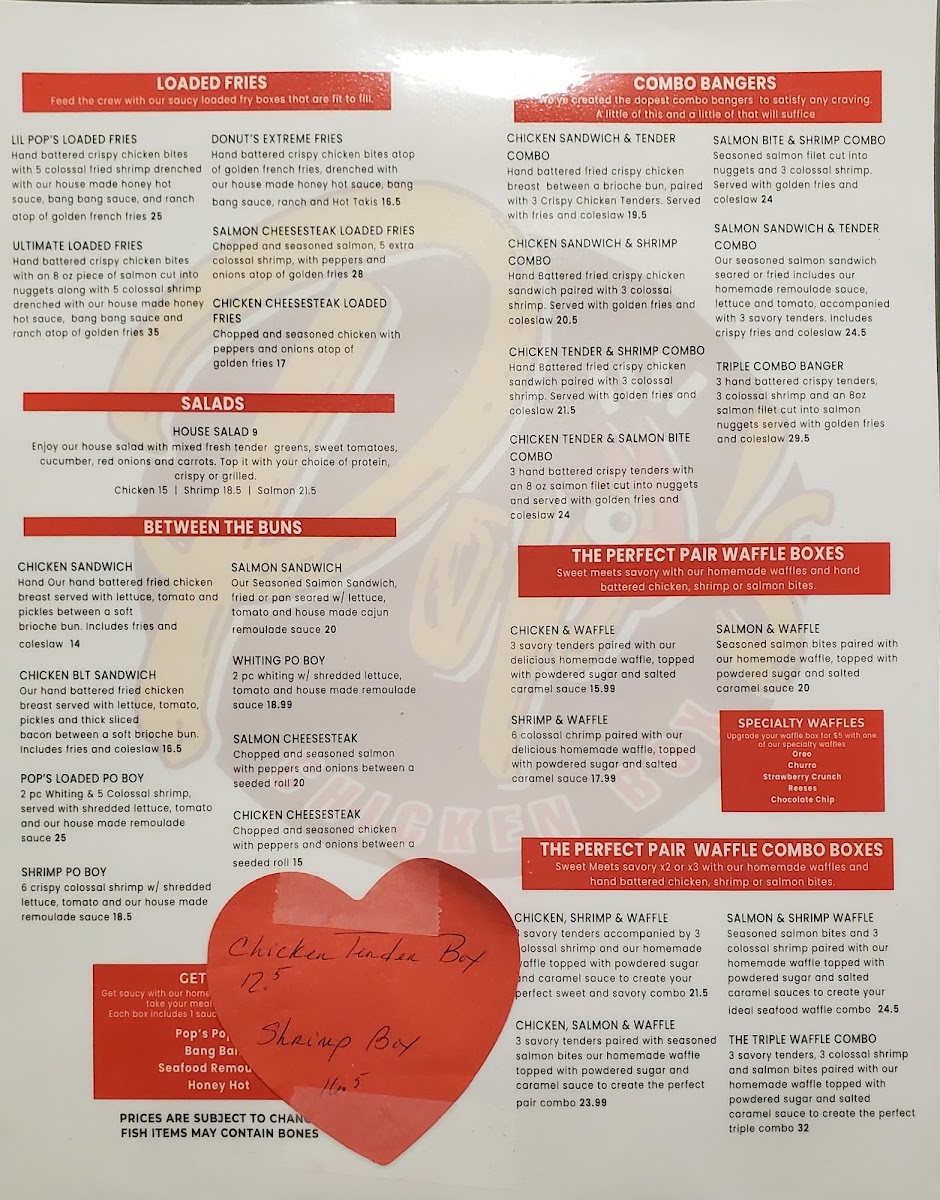 LOADED FRIES
Feed the crew with our saucy loaded fry boxes that are fit to fill.
LIL POP'S LOADED FRIES
Hand battered crispy chicken bites
with 5 colossal fried shrimp drenched
with our house made honey hot
sauce, bang bang sauce, and ranch
atop of golden french fries 25
ULTIMATE LOADED FRIES
Hand battered crispy chicken bites
with an 8 oz piece of salmon cut into
nuggets along with 5 colossal shrimp
drenched with our house made honey
hot sauce, bang bang sauce and
ranch atop of golden fries 35
DONUT'S EXTREME FRIES
Hand battered crispy chicken bites atop
of golden french fries, drenched with
our house made honey hot sauce, bang
bang sauce, ranch and Hot Takis 16.5
SALMON CHEESESTEAK LOADED FRIES
Chopped and seasoned salmon, 5 extra
colossal shrimp, with peppers and
onions atop of golden fries 28
CHICKEN CHEESESTEAK LOADED
FRIES
Chopped and seasoned chicken with
peppers and onions atop of
golden fries 17
SALADS
HOUSE SALAD 9
Enjoy our house salad with mixed fresh tender greens, sweet tomatoes,
cucumber, red onions and carrots. Top it with your choice of protein,
crispy or grilled.
Chicken 15 | Shrimp 18.5 | Salmon 21.5
BETWEEN THE BUNS
CHICKEN SANDWICH
Hand Our hand battered fried chicken
breast served with lettuce, tomato and
pickles between a soft
brioche bun. Includes fries and
coleslaw 14
CHICKEN BLT SANDWICH
Our hand battered fried chicken
breast served with lettuce, tomato,
pickles and thick sliced
bacon between a soft brioche bun.
Includes fries and coleslaw 16.5
POP'S LOADED PO BOY
2 pc Whiting & 5 Colossal shrimp,
served with shredded lettuce, tomato
and our house made remoulade
sauce 25
SHRIMP PO BOY
6 crispy colossal shrimp w/ shredded
lettuce, tomato and our house made
remoulade sauce 18.5
SALMON SANDWICH
Our Seasoned Salmon Sandwich,
fried or pan seared w/ lettuce,
tomato and house made cajun
remoulade sauce 20
WHITING PO BOY
2 pc whiting w/ shredded lettuce,
tomato and house made remoulade
sauce 18.99
SALMON CHEESESTEAK
Chopped and seasoned salmon
with peppers and onions between a
seeded roll 20
CHICKEN CHEESESTEAK
Chopped and seasoned chicken
with peppers and onions between a
seeded roll 15
GET
Get saucy with our home
take your meal
Each box includes 1 sauc
Pop's Pop
Bang Ban
Seafood Remou
Honey Hot
PRICES ARE SUBJECT TO CHANG
FISH ITEMS MAY CONTAIN BONES
Chicken Tender Box
12.5
Shrimp Box
16.5
COMBO BANGERS
We've created the dopest combo bangers to satisfy any craving.
A little of this and a little of that will suffice
CHICKEN SANDWICH & TENDER
COMBO
Hand battered fried crispy chicken
breast between a brioche bun, paired
with 3 Crispy Chicken Tenders. Served
with fries and coleslaw 19.5
CHICKEN SANDWICH & SHRIMP
COMBO
Hand Battered fried crispy chicken
sandwich paired with 3 colossal
shrimp. Served with golden fries and
coleslaw 20.5
CHICKEN TENDER & SHRIMP COMBO
Hand Battered fried crispy chicken
sandwich paired with 3 colossal
shrimp. Served with golden fries and
coleslaw 21.5
CHICKEN TENDER & SALMON BITE
COMBO
3 hand battered crispy tenders with
an 8 oz salmon filet cut into nuggets
and served with golden fries and
coleslaw 24
SALMON BITE & SHRIMP COMBO
Seasoned salmon filet cut into
nuggets and 3 colossal shrimp.
Served with golden fries and
coleslaw 24
SALMON SANDWICH & TENDER
COMBO
Our seasoned salmon sandwich
seared or fried includes our
homemade remoulade sauce,
lettuce and tomato, accompanied
with 3 savory tenders. Includes
crispy fries and coleslaw 24.5
TRIPLE COMBO BANGER
3 hand battered crispy tenders,
3 colossal shrimp and an 8oz
salmon filet cut into salmon
nuggets served with golden fries
and coleslaw 29.5
THE PERFECT PAIR WAFFLE BOXES
Sweet meets savory with our homemade waffles and hand
battered chicken, shrimp or salmon bites.
CHICKEN & WAFFLE
3 savory tenders paired with our
delicious homemade waffle, topped
with powdered sugar and salted
caramel sauce 15.99
SHRIMP & WAFFLE
6 colossal shrimp paired with our
delicious homemade waffle, topped
with powdered sugar and salted
caramel sauce 17.99
SALMON & WAFFLE
Seasoned salmon bites paired with
our homemade waffle, topped with
powdered sugar and salted
caramel sauce 20
SPECIALTY WAFFLES
Upgrade your waffle box for $5 with one
of our specialty waffles
Oreo
Churro
Strawberry Crunch
Reeses
Chocolate Chip
THE PERFECT PAIR WAFFLE COMBO BOXES
Sweet Meets savory x2 or x3 with our homemade waffles and
hand battered chicken, shrimp or salmon bites.
CHICKEN, SHRIMP & WAFFLE
3 savory tenders accompanied by 3
colossal shrimp and our homemade
waffle topped with powdered sugar
and caramel sauce to create your
perfect sweet and savory combo 21.5
CHICKEN, SALMON & WAFFLE
3 savory tenders paired with seasoned
salmon bites our homemade waffle
topped with powdered sugar and
caramel sauce to create the perfect
pair combo 23.99
SALMON & SHRIMP WAFFLE
Seasoned salmon bites and 3
colossal shrimp paired with our
homemade waffle topped with
powdered sugar and salted
caramel sauces to create your
ideal seafood waffle combo 24.5
THE TRIPLE WAFFLE COMBO
3 savory tenders, 3 colossal shrimp
and salmon bites paired with our
homemade waffle topped with
powdered sugar and salted
caramel sauce to create the perfect
triple combo 32
Pop's
CHICKEN BOX